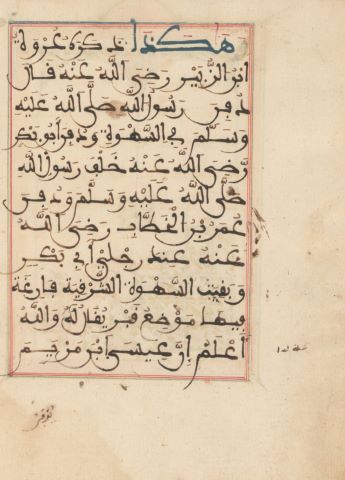 هكذا ذكره عروة
ابن الزبير رضي الله عنه قال
دفن رسول الله صلى الله عليه
وسلم في السهوة ودفن أبو بكر
رضي الله عنه خلف رسول الله
صلى الله عليه وسلم ودفن
عمر بن الخطاب رضي الله
عنه عند رجلي أبي بكر
وبقيت السهوة الشرقية فارغة
فيها موضع قبر يقال له والله
أعلم إن عيسى ابن مريم